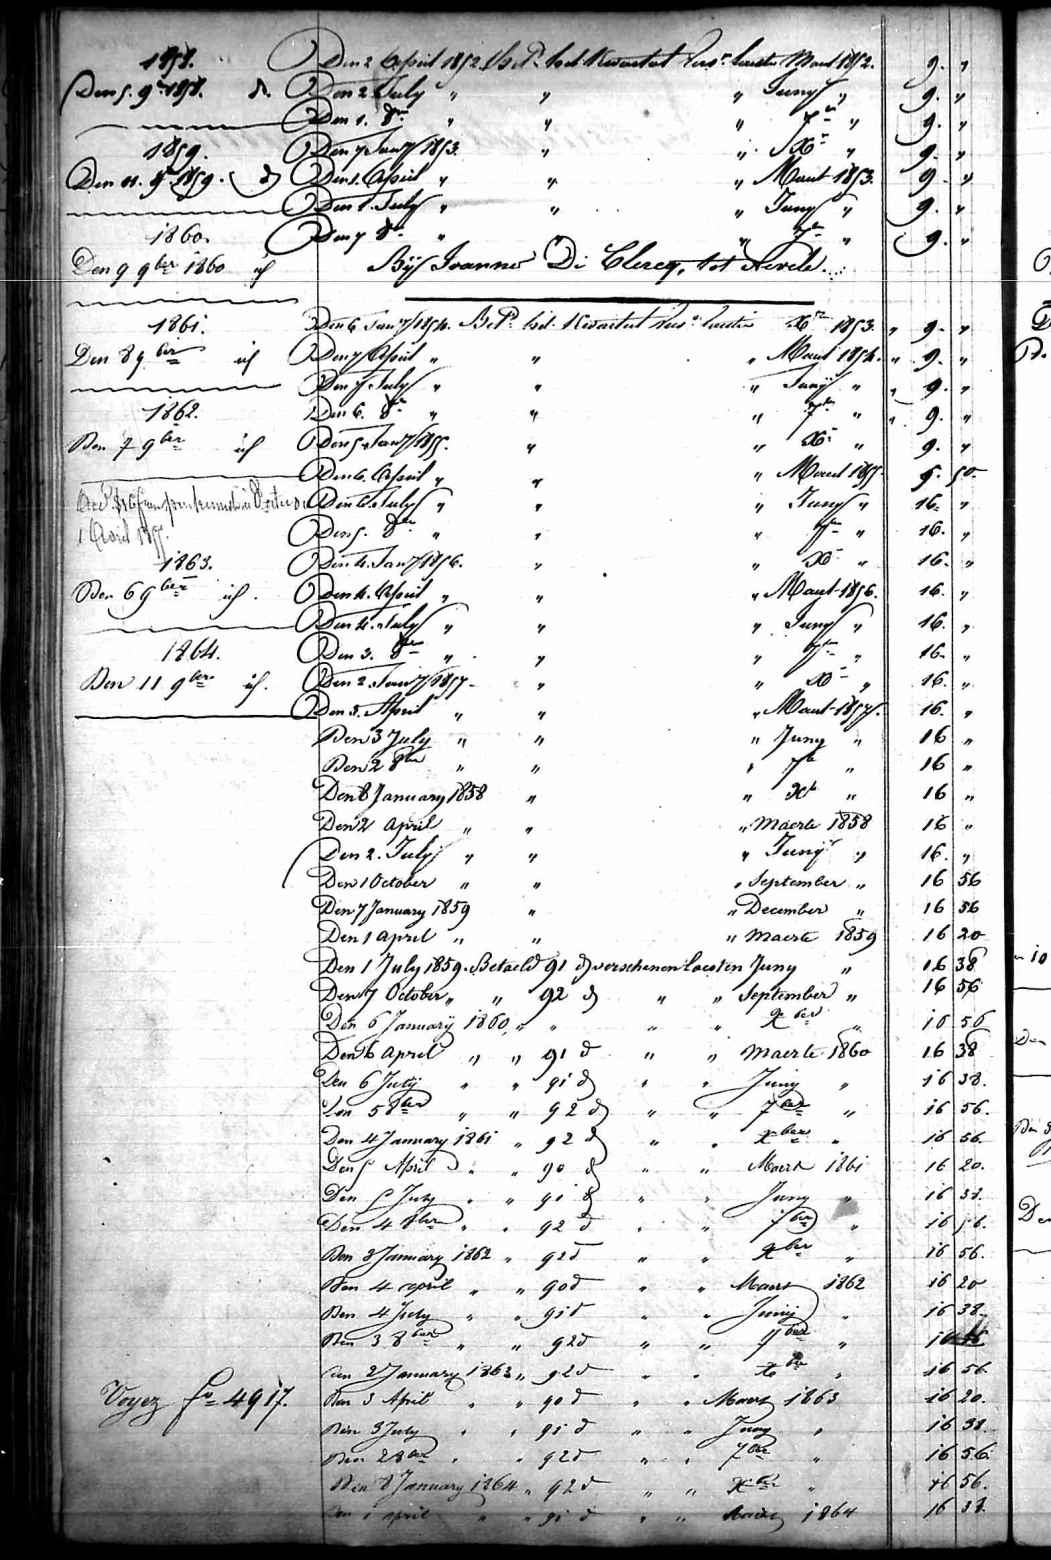 1858.
Den 5. 9r 1858. d.
1859.
Den 11. 9r 1859. d
1860.
Den 9 9ber 1860 ich
1861.
Den 8 9ber ich
1862.
Den 7 9ber ich
1 April 1855.
1863.
Den 6 9ber ich.
1864.
Den 11 9ber ich.
Voyez fo 4917.
Den 2 April 1852. Betd. het Kwartaal Maart 1852. 9. "
Den 2 July " " " Juny " 9. "
Den 1. 8r " " " 7er " 9. "
Den 7 Jany 1853. " " Xr " 9. "
Den 1. April " " " Maart 1853. 9. "
Den 1. July " " " Juny " 9. "
Den 7 8r " " 7er " 9. "
Bij Joanna De Clercq, tot
Den 6 Jany 1854. Betd. het Kwartaal Xr 1853. " 9. "
Den 7 April " " " Maart 1854. " 9. "
Den 7 July " " " Juny " " 9. "
Den 6. 8r " " " 7er " " 9. "
Den 5 Jany 1855. " " Xr " 9. "
Den 6. April " " " Maart 1855. 9. 50.
Den 6. July " " " Juny " 16. "
Den 5. 8r " " " 7er " 16. "
Den 4. Jany 1856. " " Xr " 16. "
Den 4. April " " " Maart 1856. 16. "
Den 4. July " " " Juny " 16. "
Den 3. 8r " " " 7er " 16. "
Den 2. Jany 1857. " " Xr " 16. "
Den 3. April " " " Maart 1857. 16. "
Den 3 July " " " Juny " 16 "
Den 2 8ber " " " 7b " 16 "
Den 8 January 1858 " " Xb " 16 "
Den 2 April " " " Maerte 1858 16 "
Den 2. July " " " Juny " 16. "
Den 1 October " " " September " 16 56
Den 7 January 1859 " " December " 16 56
Den 1 April " " " Maerte 1859 16 20
Den 1 July 1859. Betaeld 91 d verschenen laesten Juny " 16 38
Den 7 October " " 92 d " " September " 16 56
Den 6 January 1860 " " " " Xber " 16 56
Den 6 April " " 91 d " " Maerte 1860 16 38
Den 6 July " " 91 d " " Juny " 16 38.
Den 5 8ber " " 92 d " " 7ber " 16 56.
Den 4 January 1861 " 92 d " " Xber " 16 56.
Den 5 April " " 90 d " " Maert 1861 16 20.
Den 5 July " " 91 d " " Juny " 16 38.
Den 4 8ber " " 92 d " " 7ber " 16 56.
Den 3 January 1862 " 92 d " " Xber " 16 56.
Den 4 April " " 90 d " " Maert 1862 16 20
Den 4 July " " 91 d " " Juny " 16 38.
Den 3 8ber " " 92 d " " 7ber " 16
Den 2 January 1863 " 92 d " " Xber " 16 56.
Den 3 April " " 90 d " " Maert 1863 16 20.
Den 3 July " " 91 d " " Juny " 16 38.
Den 2 8ber " " 92 d " " 7ber " 16 56.
Den 8 January 1864 " 92 d " " Xber " 16 56.
Den 1 April " " 91 d " " Maert 1864 16 38.